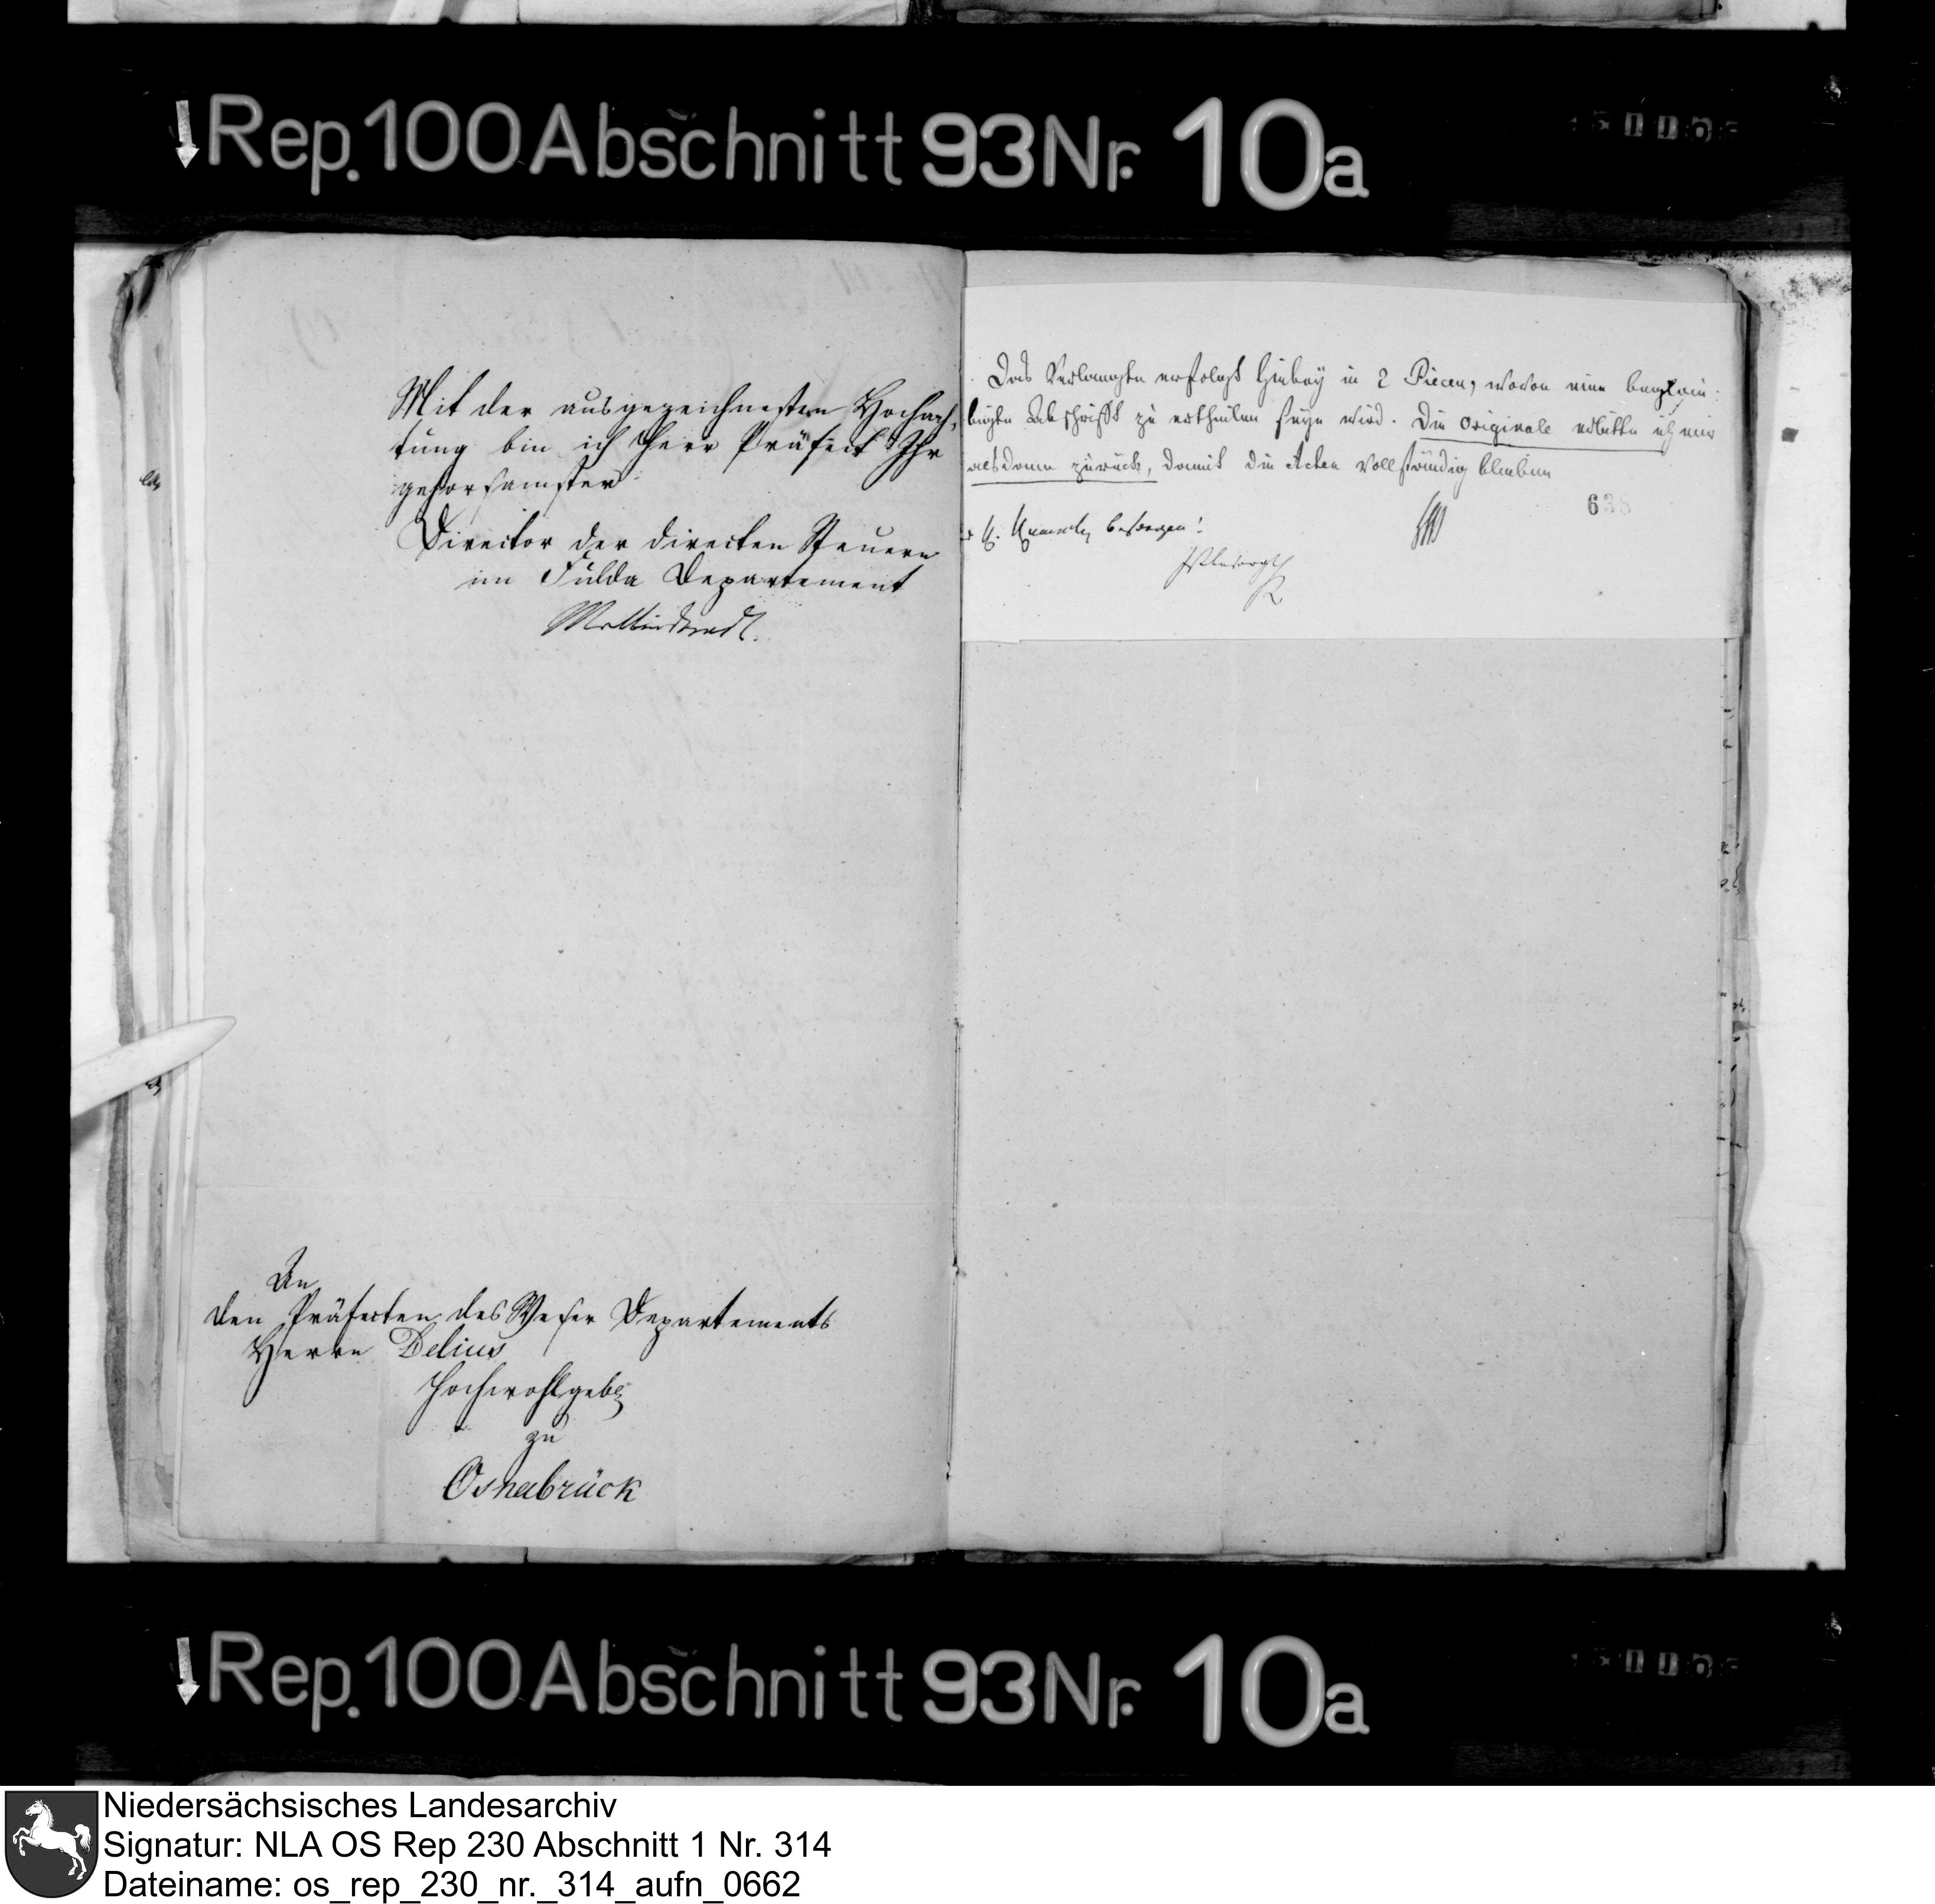 Rep. 100 Abschnitt 93 Nr. 10a
Mit der ausgezeichnesten Hochach-
tung bin ich Herr Präfect Ihr
gehorsamster
Director der directen Steuern
im Fulda Departement
An
den Präfecten des Weser Departements
Herrn Delius
Hochwohlgeb
zu
Osnabrück
Das Verlangte erfolgt hiebey in 2 Piecen, wovon eine beglau-
bigte Abschrifft zu ertheilen seyn wird. Die Originale erbitte ich mir
alsdann zurück, damit die Acten vollständig bleiben
638
besorgen!
Rep. 100 Abschnitt 93 Nr. 10a
Niedersächsisches Landesarchiv
Signatur: NLA OS Rep 230 Abschnitt 1 Nr. 314
Dateiname: os_rep_230_nr._314_aufn_0662